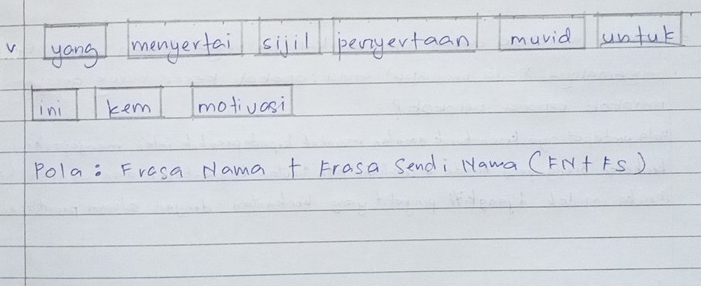 v yang menyertai sijil penyertaan murid untuk
ini kem motivasi
Pola : Frasa Nama + Frasa Sendi Nama (FN + FS)